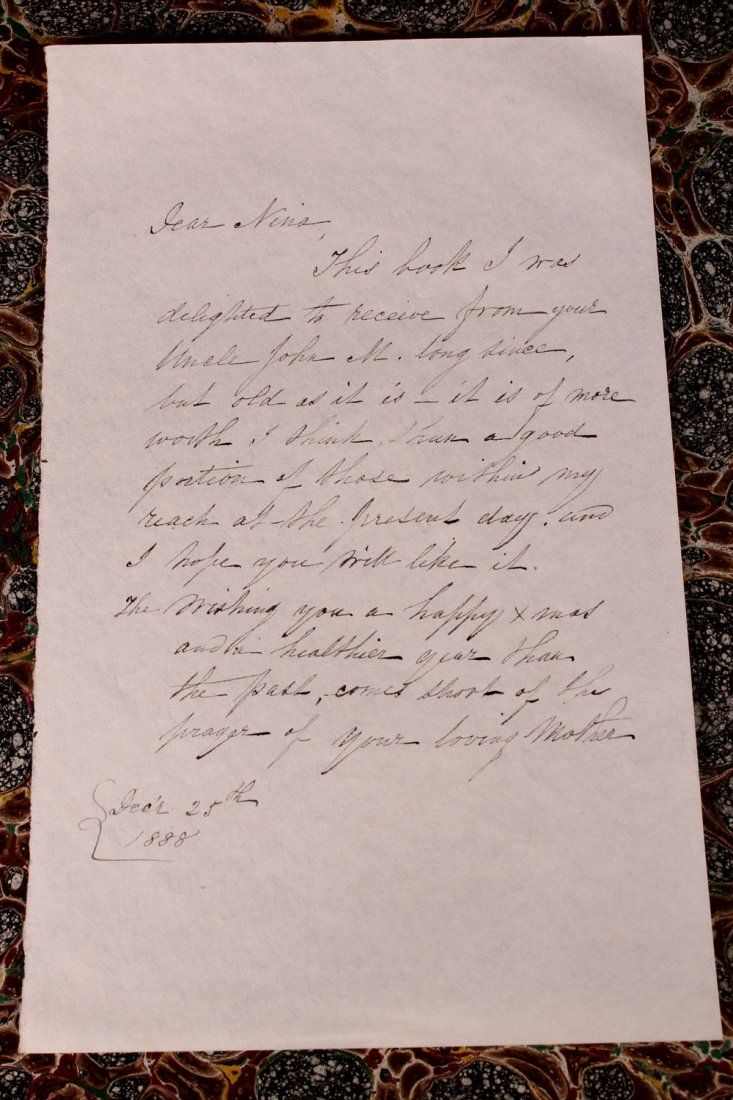 Dear Nina,
This book I was
delighted to receive from your
Uncle John M. long since,
but old as it is – it is of more
worth I think, than a good
portion of those within my
reach at the present day. and
I hope you will like it.
The wishing you a happy Xmas
and a healthier year than
the past, comes short of the
prayer of your loving Mother
Dec'r 25th
1888